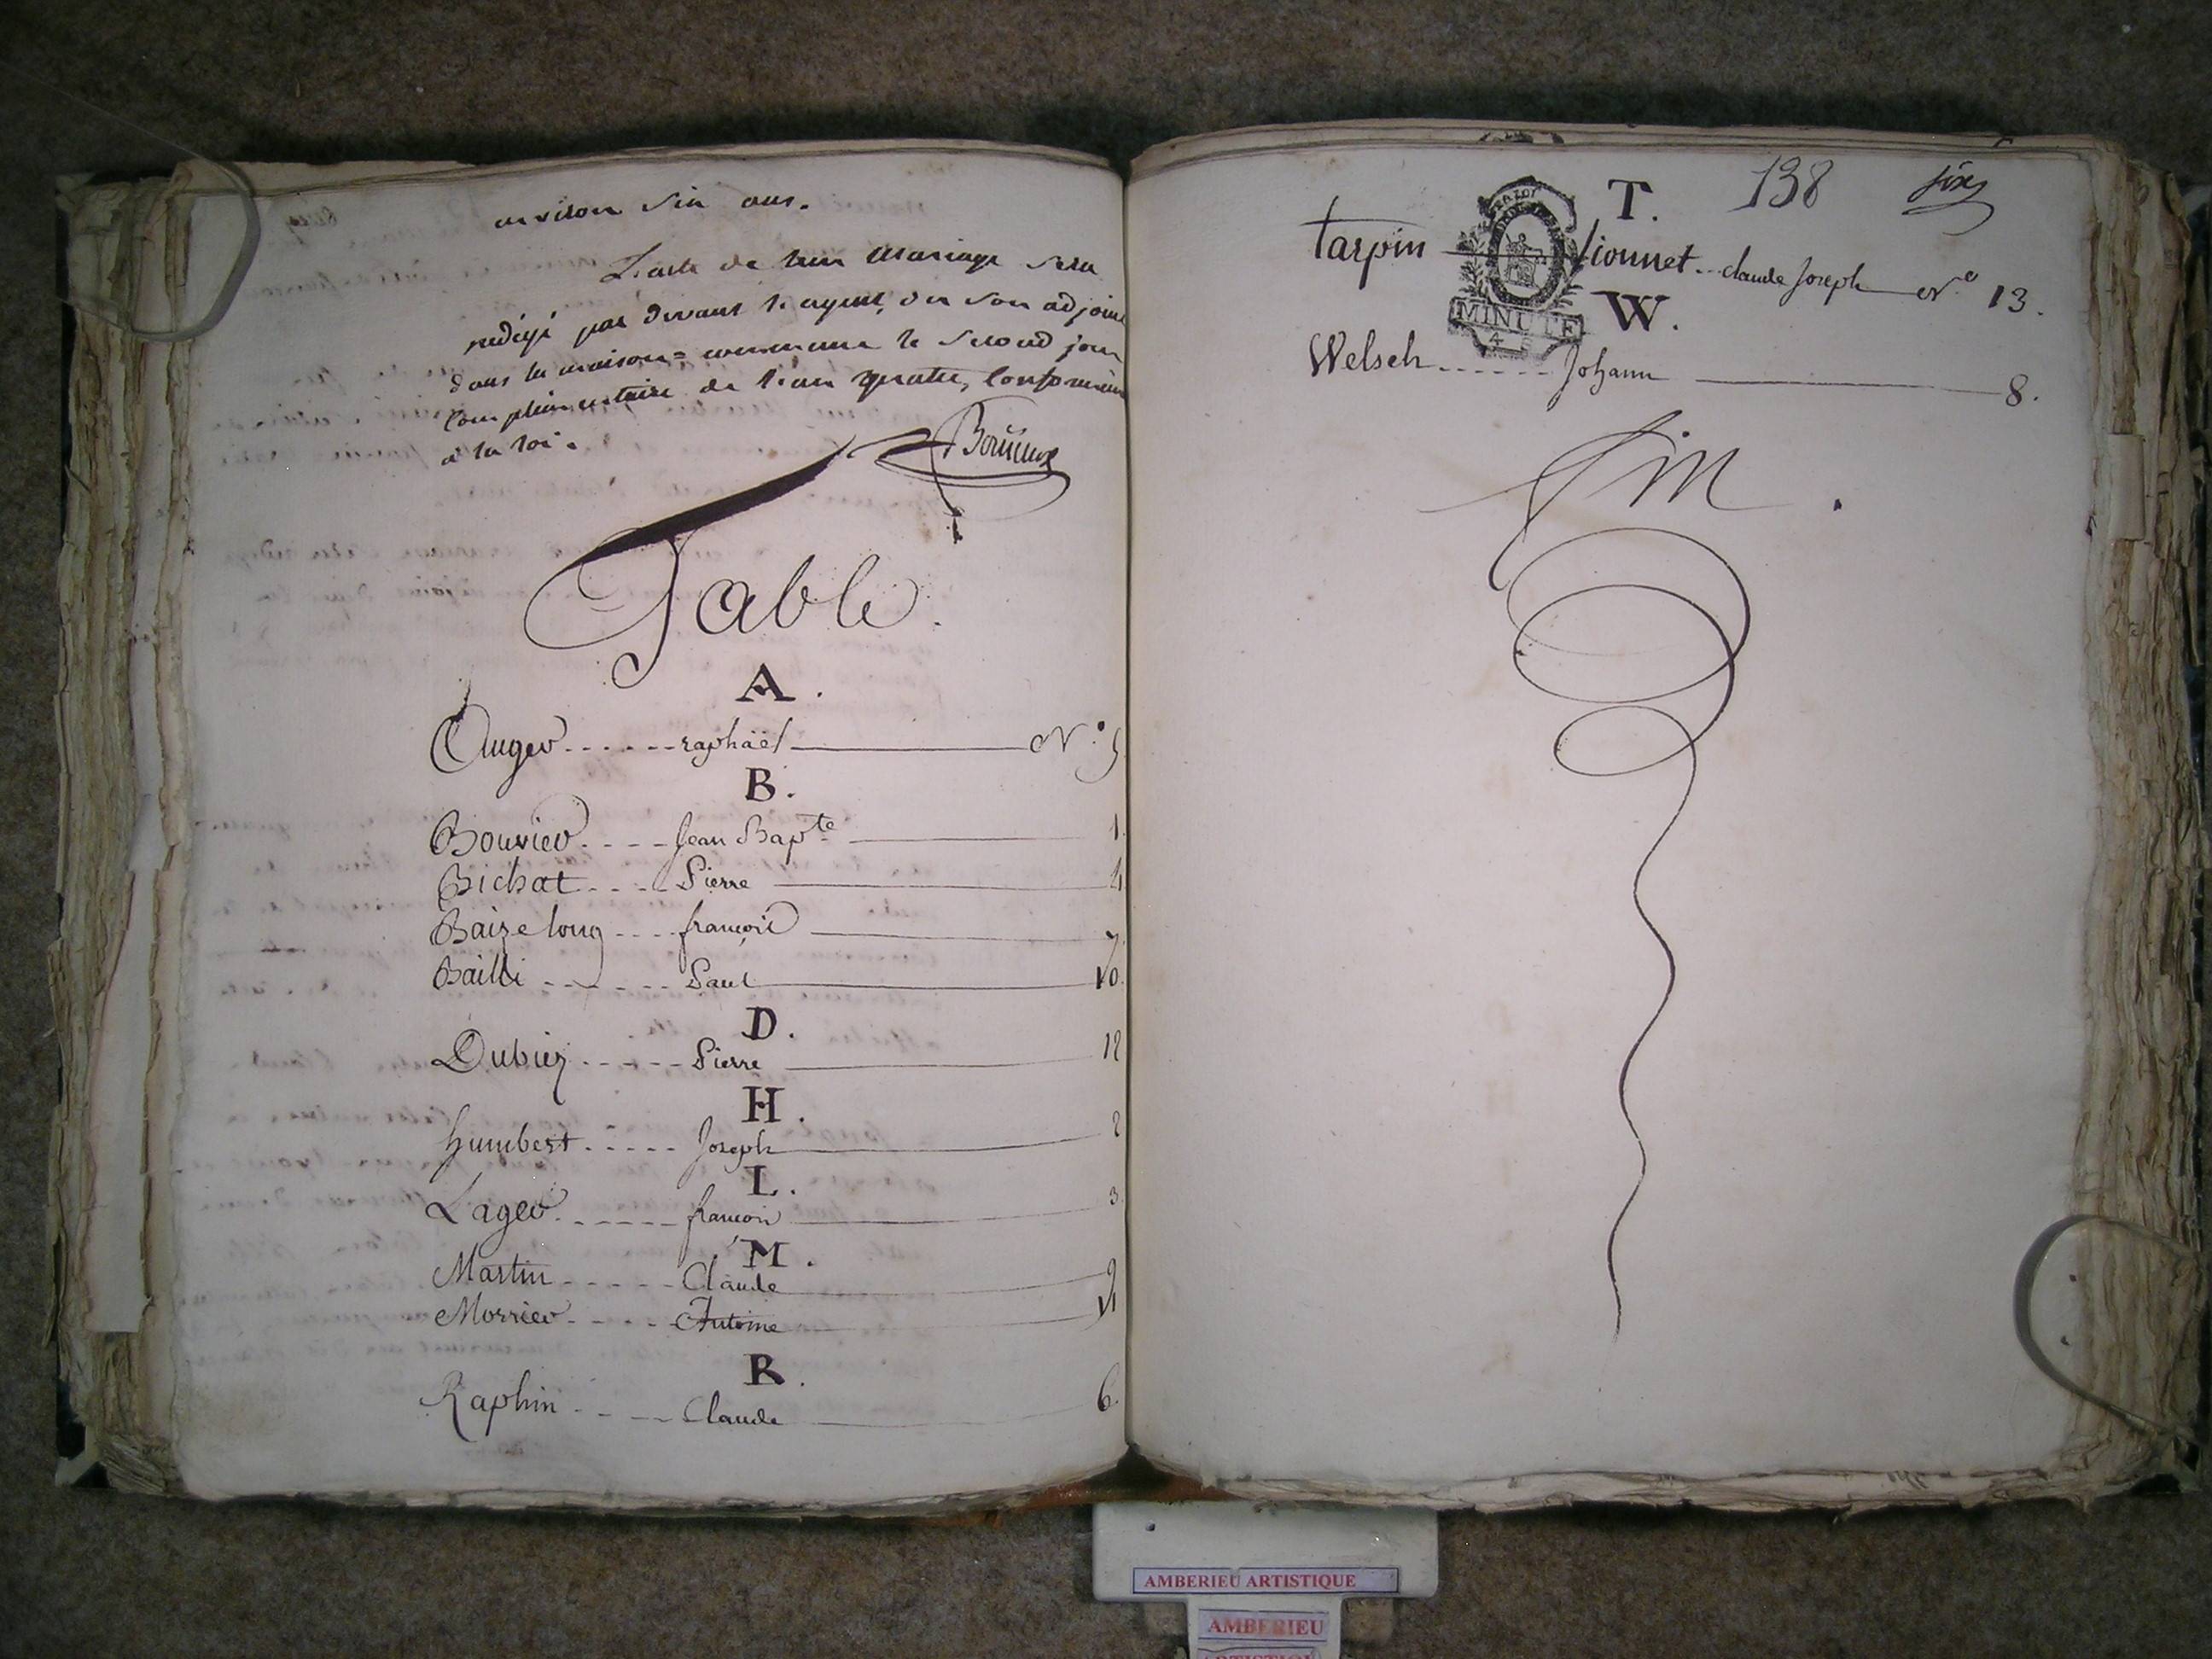 environ six ans.
L'acte de leur mariage sera
rédigé par devant l'agent, ou son adjoint
dans la maison = commune le second jour
Complémentaire de l'an quatre, Conformém
à la loi.
Table.
A.
Auger ------ raphaël N.° 5
B.
Bouvier ---- Jean Bap.te 1.
Bichat ---- Pierre 4
Baizelong ---- françois 7
Bailli ------ Paul 10.
D.
Dubiez ----- Pierre 12
H.
humbert ----- Joseph 2
L.
Lager ------ françois 3
M.
Martin ------ Claude 9
Morrier ----- Antoine 11
R.
Raphin ----- Claude 6.
138 six
T.
tarpin Vionnet -- claude Joseph N.° 13.
LA LOI
MINUTE
W.
Welsch ------ Johann 8.
fin.
AMBERIEU ARTISTIQUE
AMBERIEU
ARTISTIQUE